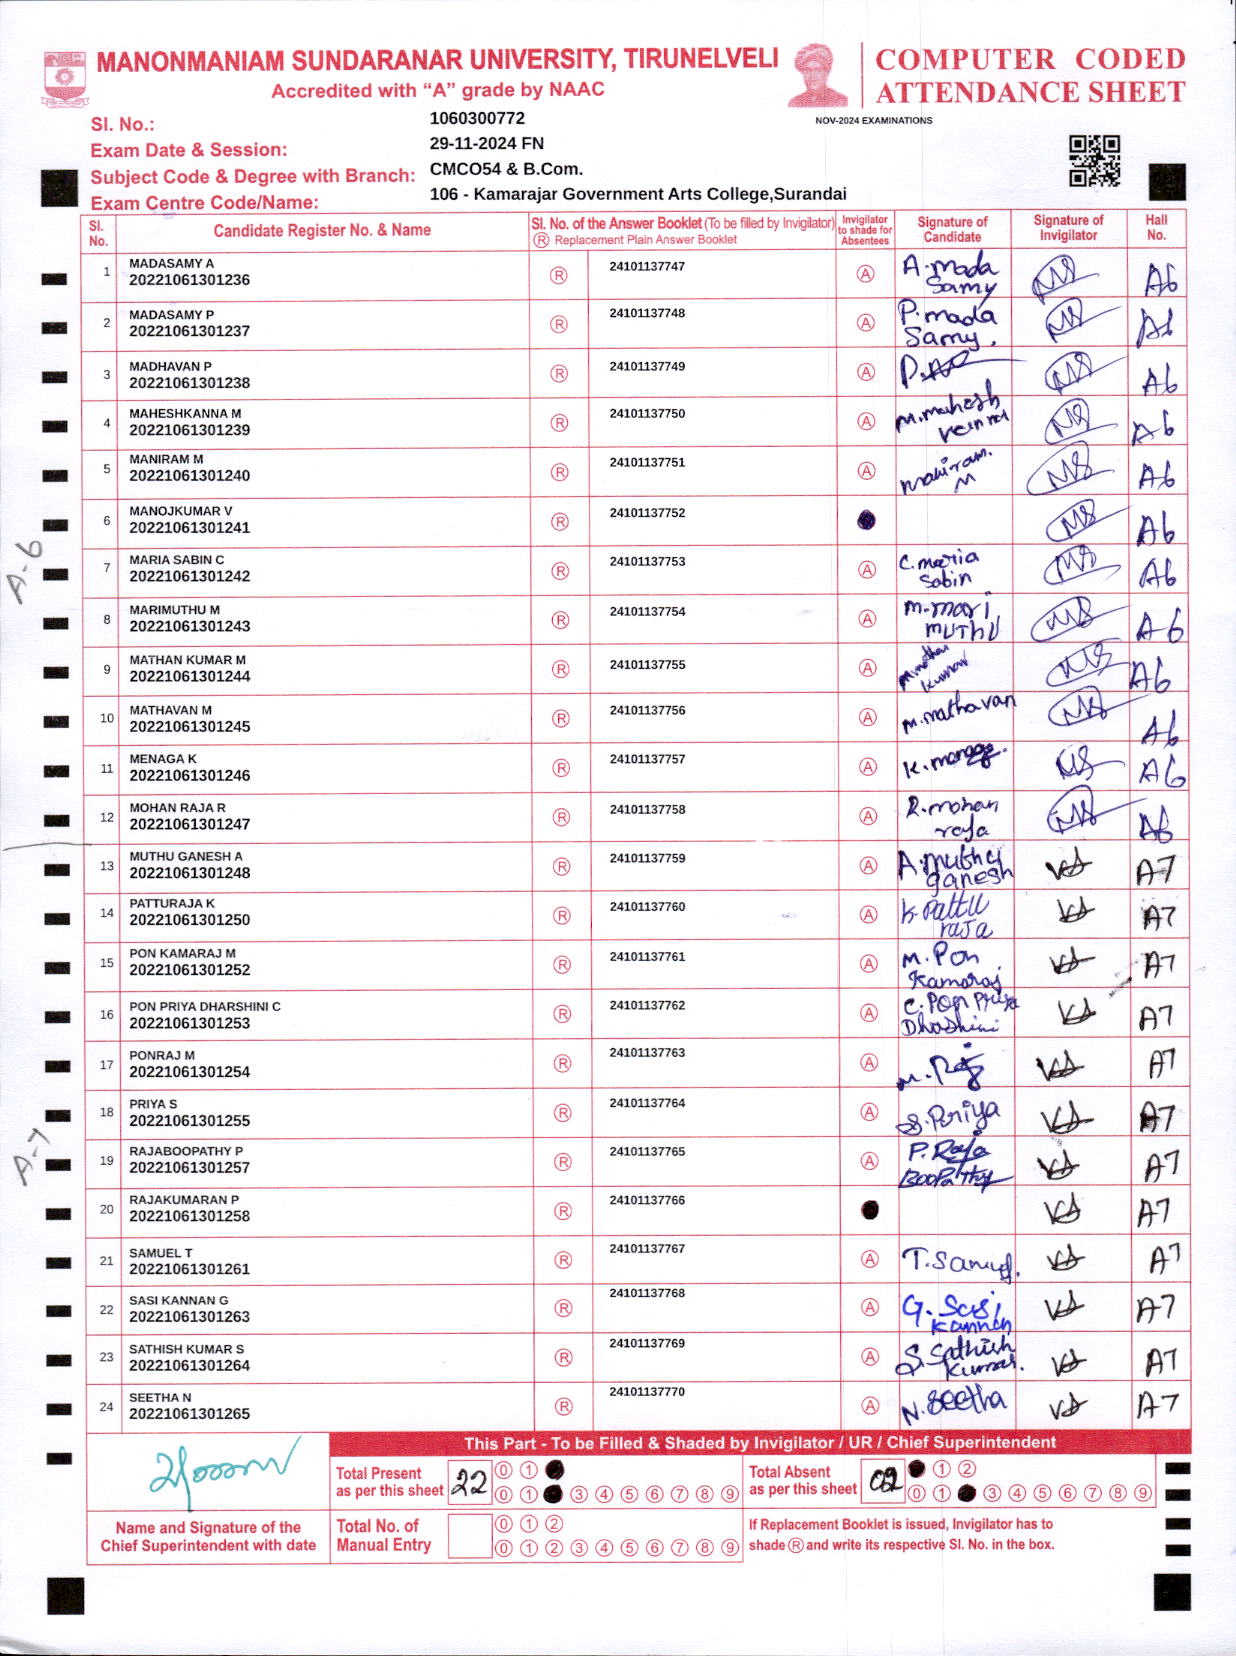 MANONMANIAM SUNDARANAR UNIVERSITY, TIRUNELVELI
Accredited with “A” grade by NAAC
COMPUTER CODED
ATTENDANCE SHEET
NOV-2024 EXAMINATIONS
Sl. No.: 1060300772
Exam Date & Session: 29-11-2024 FN
Subject Code & Degree with Branch: CMCO54 & B.Com.
Exam Centre Code/Name: 106 - Kamarajar Government Arts College,Surandai
Sl. No. Candidate Register No. & Name Sl. No. of the Answer Booklet (To be filled by Invigilator) Ⓡ Replacement Plain Answer Booklet Invigilator to shade for Absentees Signature of Candidate Signature of Invigilator Hall No.
1 MADASAMY A 20221061301236 Ⓡ 24101137747 Ⓐ A.mada Samy A6
2 MADASAMY P 20221061301237 Ⓡ 24101137748 Ⓐ P.mada Samy. A6
3 MADHAVAN P 20221061301238 Ⓡ 24101137749 Ⓐ A6
4 MAHESHKANNA M 20221061301239 Ⓡ 24101137750 Ⓐ M.mahesh A6
5 MANIRAM M 20221061301240 Ⓡ 24101137751 Ⓐ Maniram. M A6
6 MANOJKUMAR V 20221061301241 Ⓡ 24101137752 A6
7 MARIA SABIN C 20221061301242 Ⓡ 24101137753 Ⓐ C.maria Sabin A6
8 MARIMUTHU M 20221061301243 Ⓡ 24101137754 Ⓐ M.mari MUTHU A6
9 MATHAN KUMAR M 20221061301244 Ⓡ 24101137755 Ⓐ kumar A6
10 MATHAVAN M 20221061301245 Ⓡ 24101137756 Ⓐ M.mathavan A6
11 MENAGA K 20221061301246 Ⓡ 24101137757 Ⓐ A6
12 MOHAN RAJA R 20221061301247 Ⓡ 24101137758 Ⓐ R.mohan raja A6
13 MUTHU GANESH A 20221061301248 Ⓡ 24101137759 Ⓐ A.muthu ganesh A7
14 PATTURAJA K 20221061301250 Ⓡ 24101137760 Ⓐ K.Pattu raja A7
15 PON KAMARAJ M 20221061301252 Ⓡ 24101137761 Ⓐ M.Pon Kamaraj A7
16 PON PRIYA DHARSHINI C 20221061301253 Ⓡ 24101137762 Ⓐ C.Pon Priya Dhashini A7
17 PONRAJ M 20221061301254 Ⓡ 24101137763 Ⓐ A7
18 PRIYA S 20221061301255 Ⓡ 24101137764 Ⓐ S.Priya A7
19 RAJABOOPATHY P 20221061301257 Ⓡ 24101137765 Ⓐ P.Raja BooPathy A7
20 RAJAKUMARAN P 20221061301258 Ⓡ 24101137766 A7
21 SAMUEL T 20221061301261 Ⓡ 24101137767 Ⓐ T.Samuel. A7
22 SASI KANNAN G 20221061301263 Ⓡ 24101137768 Ⓐ G.Sasi Kannan A7
23 SATHISH KUMAR S 20221061301264 Ⓡ 24101137769 Ⓐ S.Sathish Kumar. A7
24 SEETHA N 20221061301265 Ⓡ 24101137770 Ⓐ N.Seetha A7
A-6
A-7
This Part - To be Filled & Shaded by Invigilator / UR / Chief Superintendent
Total Present as per this sheet 22
0 1
0 1 3 4 5 6 7 8 9
Total Absent as per this sheet 02
1 2
0 1 3 4 5 6 7 8 9
Name and Signature of the Chief Superintendent with date
Total No. of Manual Entry
0 1 2
0 1 2 3 4 5 6 7 8 9
If Replacement Booklet is issued, Invigilator has to
shade Ⓡ and write its respective Sl. No. in the box.